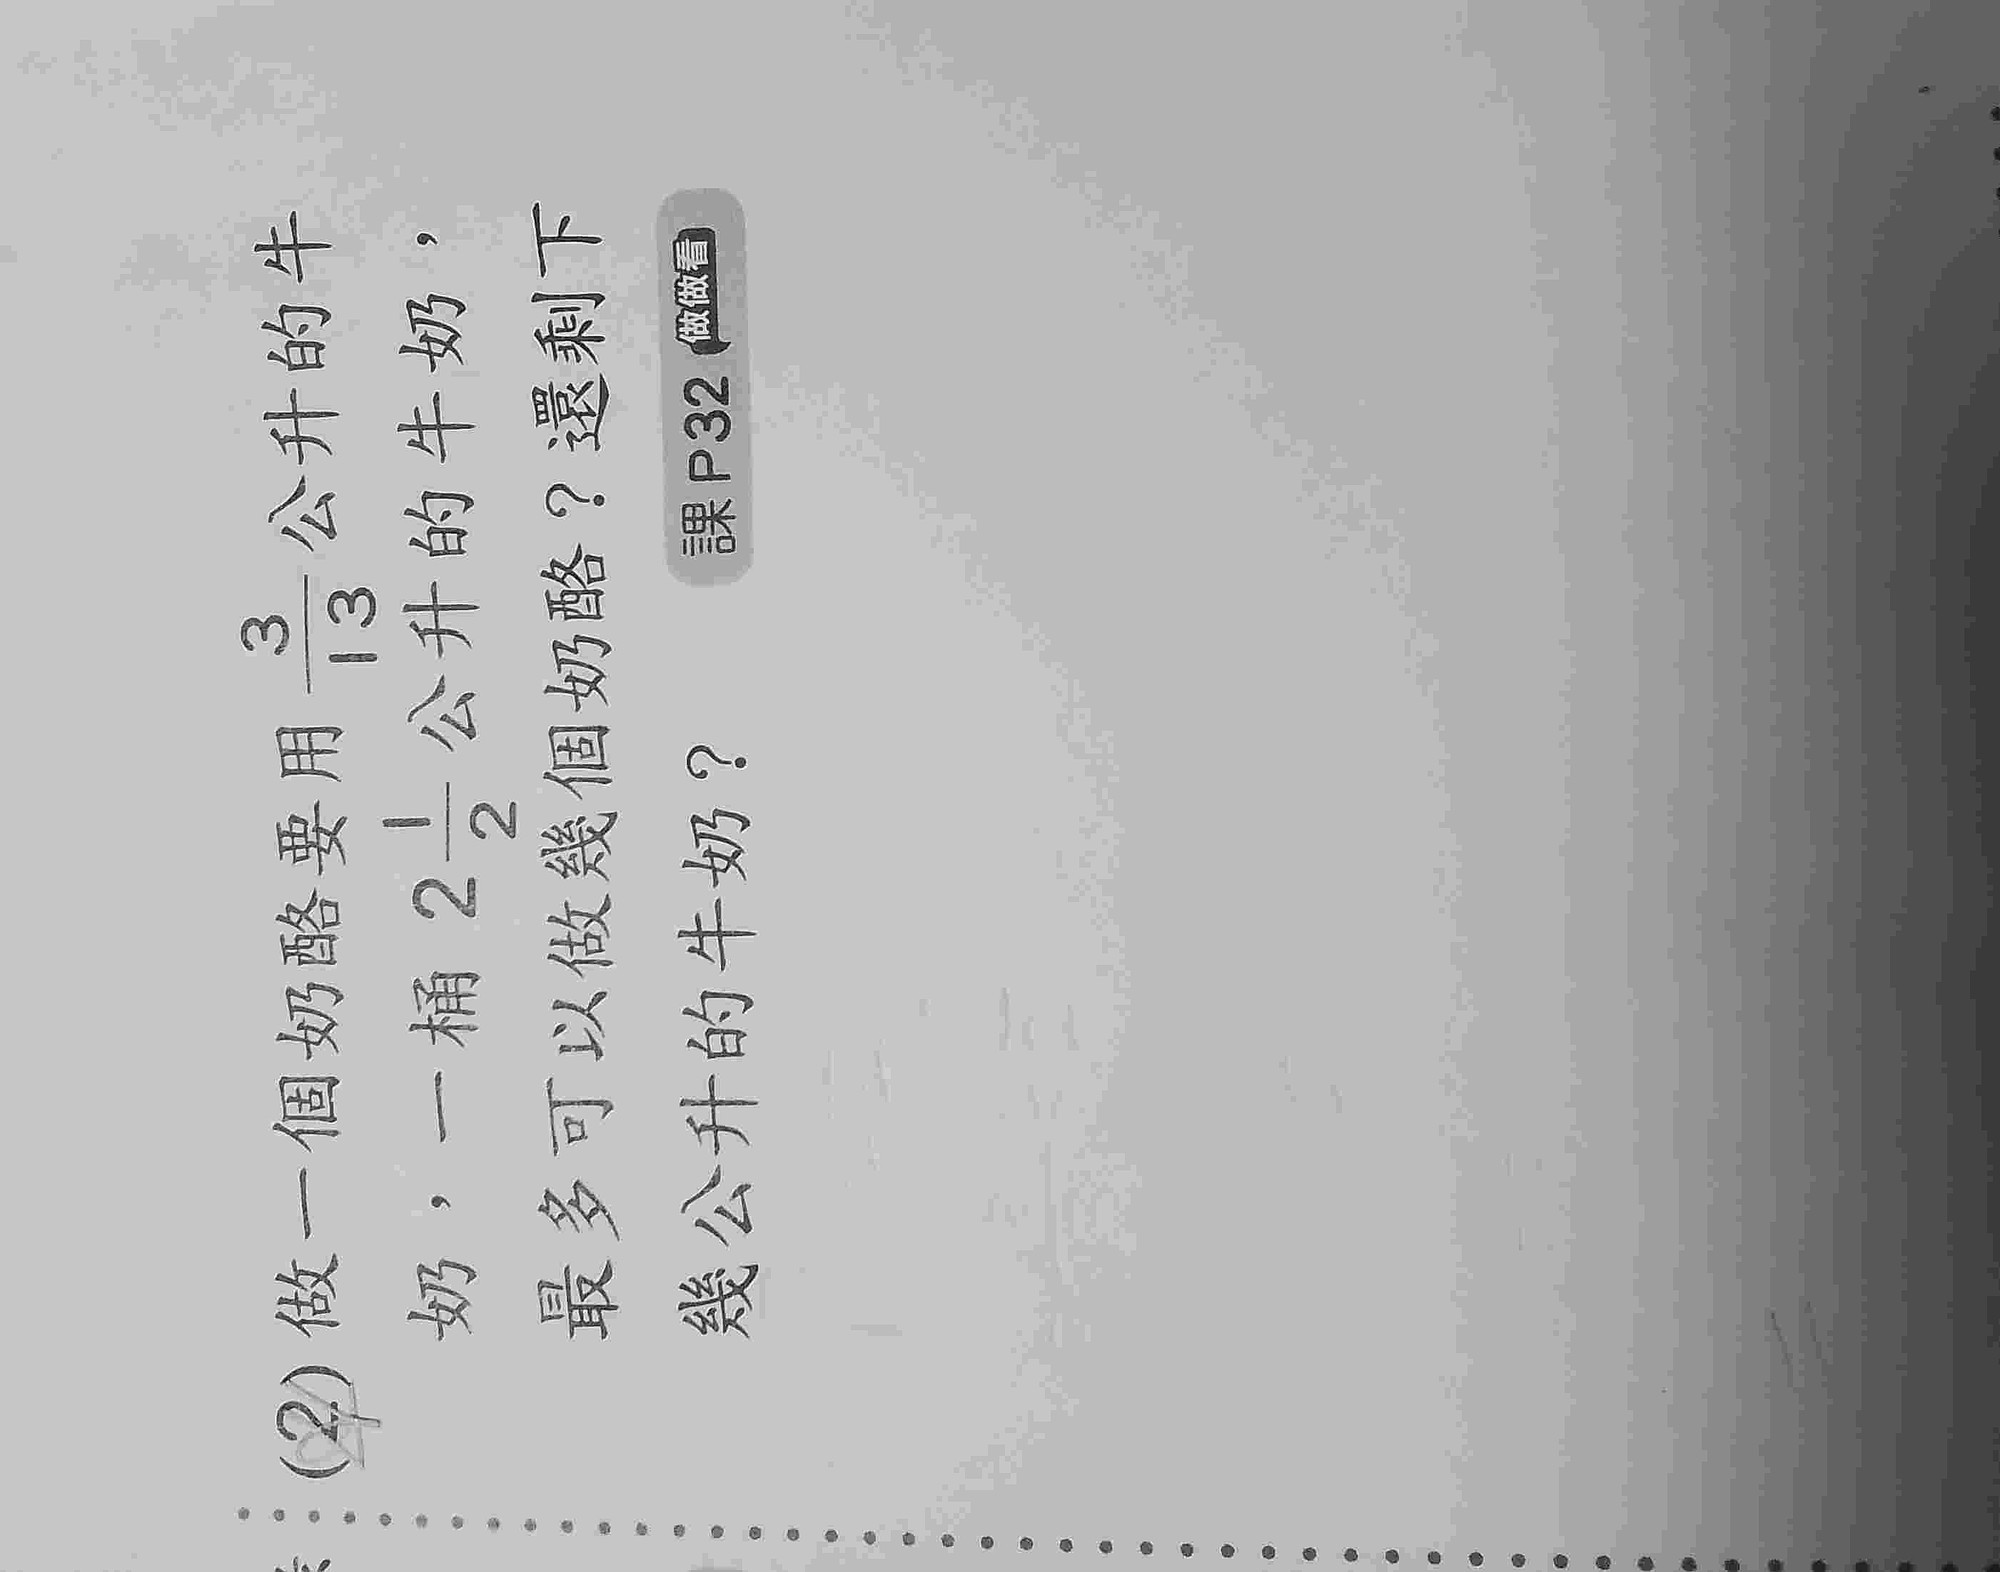 (2) 做一個奶酪要用 3/13 公升的牛
奶，一桶 2 1/2 公升的牛奶，
最多可以做幾個奶酪？還剩下
幾公升的牛奶？
課 P 32 做做看